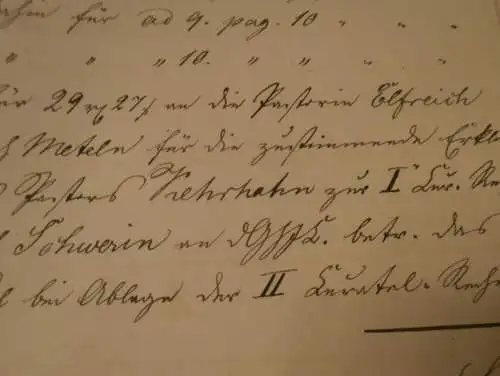 für ad 9. pag. 10 " " "
" " " 10. " " " "
für 29 rf 27 f an die Pastorin Elfreich
Meteln für die zustimmende Erklä
Pastors Kehrhahn zur I Cur. Re
Schwerin an betr. das
bei Ablage der II Curatel-Rechn